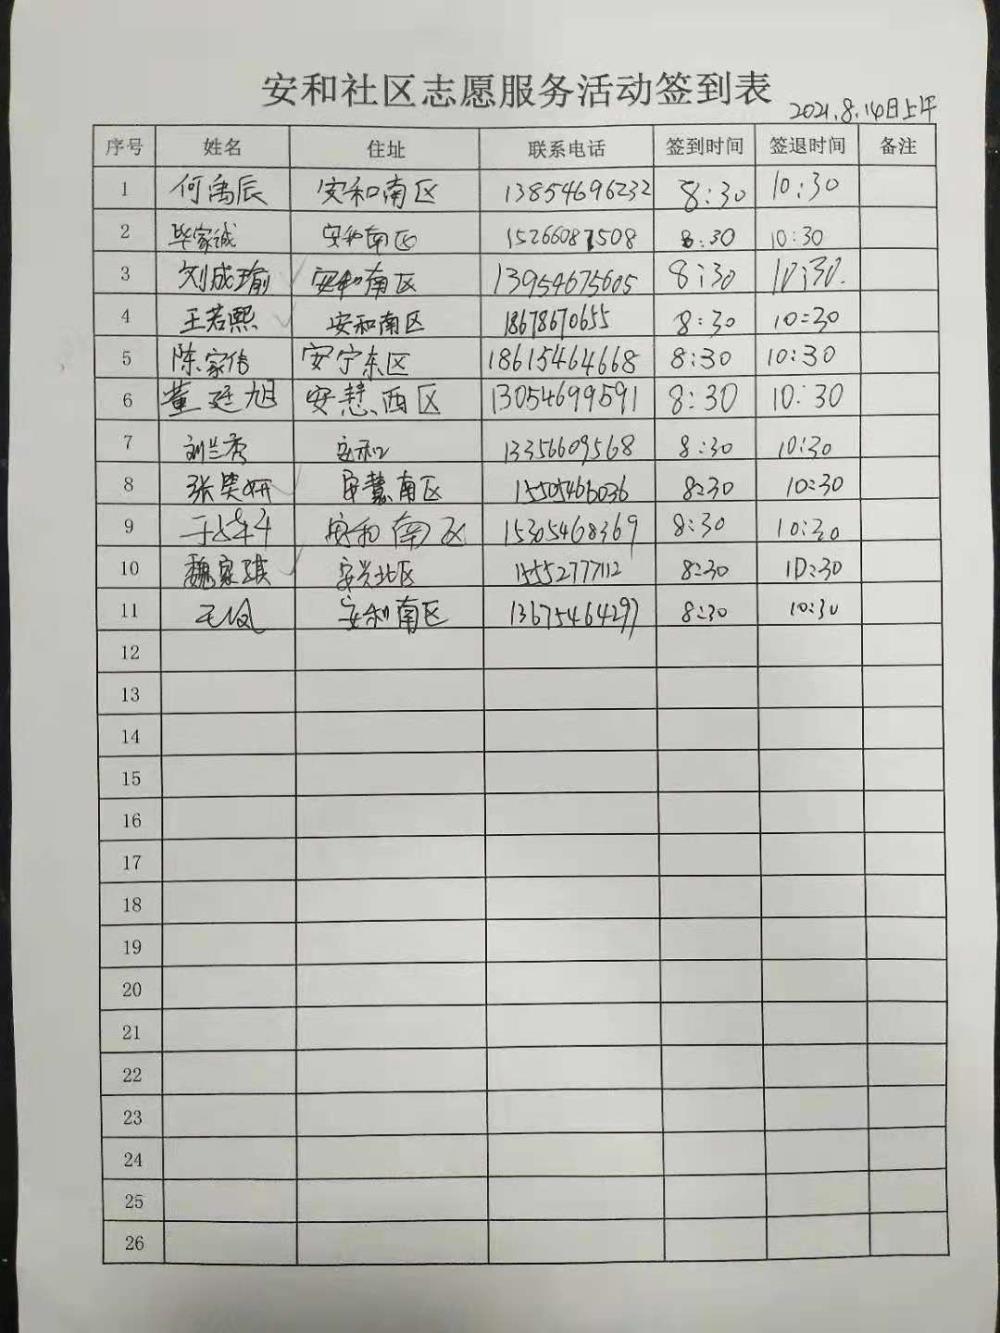 安和社区志愿服务活动签到表
2021.8.14日上午
序号 姓名 住址 联系电话 签到时间 签退时间 备注
1 何禹辰 安和南区 13854696232 8:30 10:30
2 毕家诚 安和南区 15266087508 8:30 10:30
3 刘成瑜 安和南区 13954675605 8:30 10:30.
4 王若熙 安和南区 18678670655 8:30 10:30
5 陈家信 安宁东区 18615464668 8:30 10:30
6 董廷旭 安慧西区 13054699591 8:30 10:30
7 刘兰秀 安和 13356609568 8:30 10:30
8 张昊妍 安慧南区 15505466036 8:30 10:30
9 安和南区 15305468369 8:30 10:30
10 魏家琪 安兴北区 15552777112 8:30 10:30
11 王凤 安和南区 13675464297 8:30 10:30
12
13
14
15
16
17
18
19
20
21
22
23
24
25
26